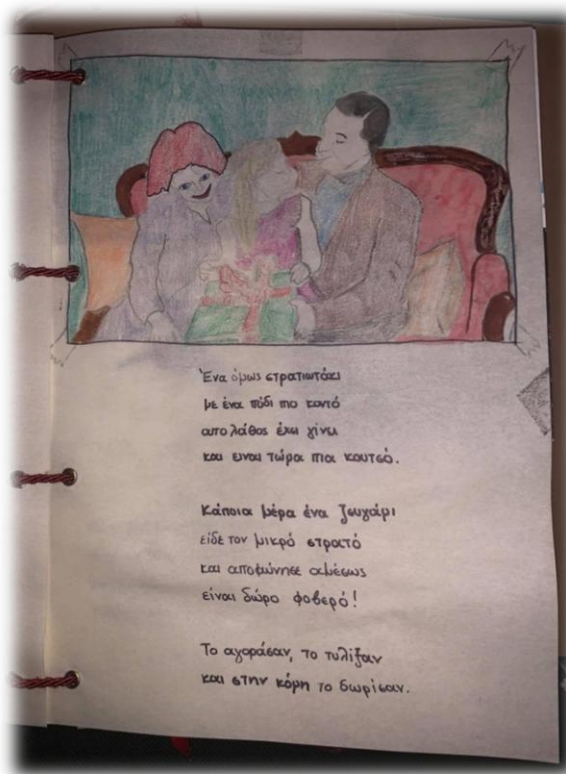 Ένα όμως στρατιωτάκι
με ένα πόδι πιο κοντό
απο λάθος έχει γίνει
και ειναι τώρα πια κουτσό.
Κάποια μέρα ένα ζευγάρι
είδε τον μικρό στρατό
και αποφώνησε αμέσως
είναι δώρο φοβερό!
Το αγοράσαν, το τυλίξαν
και στην κόρη το δωρίσαν.